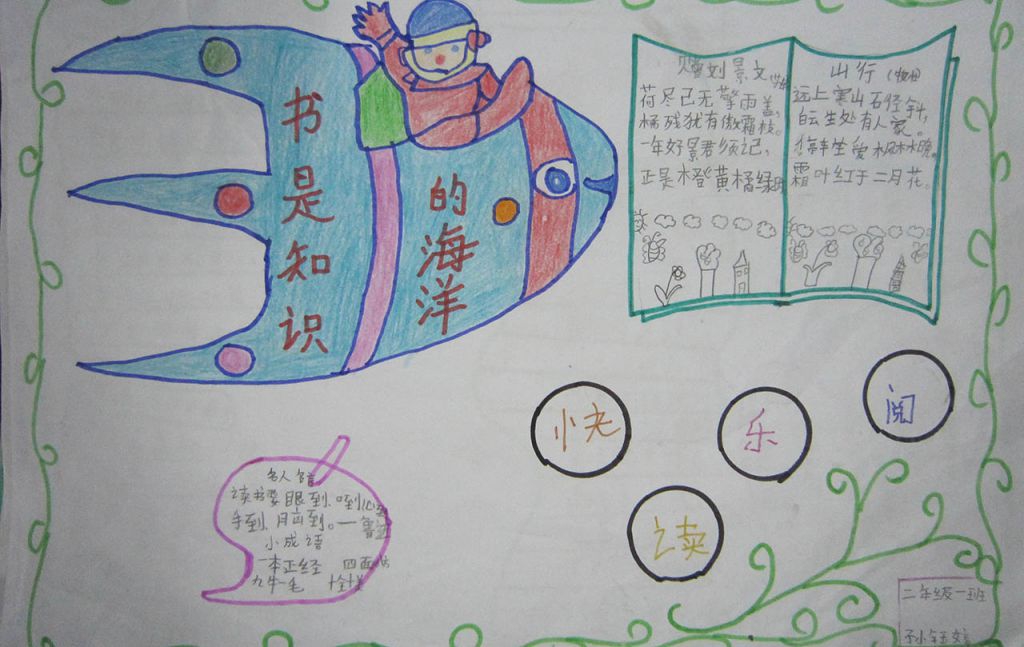 书是知识
的海洋
赠刘景文
荷尽已无擎雨盖,
橘残犹有傲霜枝。
一年好景君须记,
正是橙黄橘绿时
山行 (牧)
远上寒山石径斜,
白云生处有人家。
停车坐爱枫林晚。
霜叶红于二月花。
快乐阅
读
名人言
读书要眼到、口到、心到
手到、脑到。一鲁迅
小成语
一本正经 四面
九牛一毛 十全十美
二年级一班